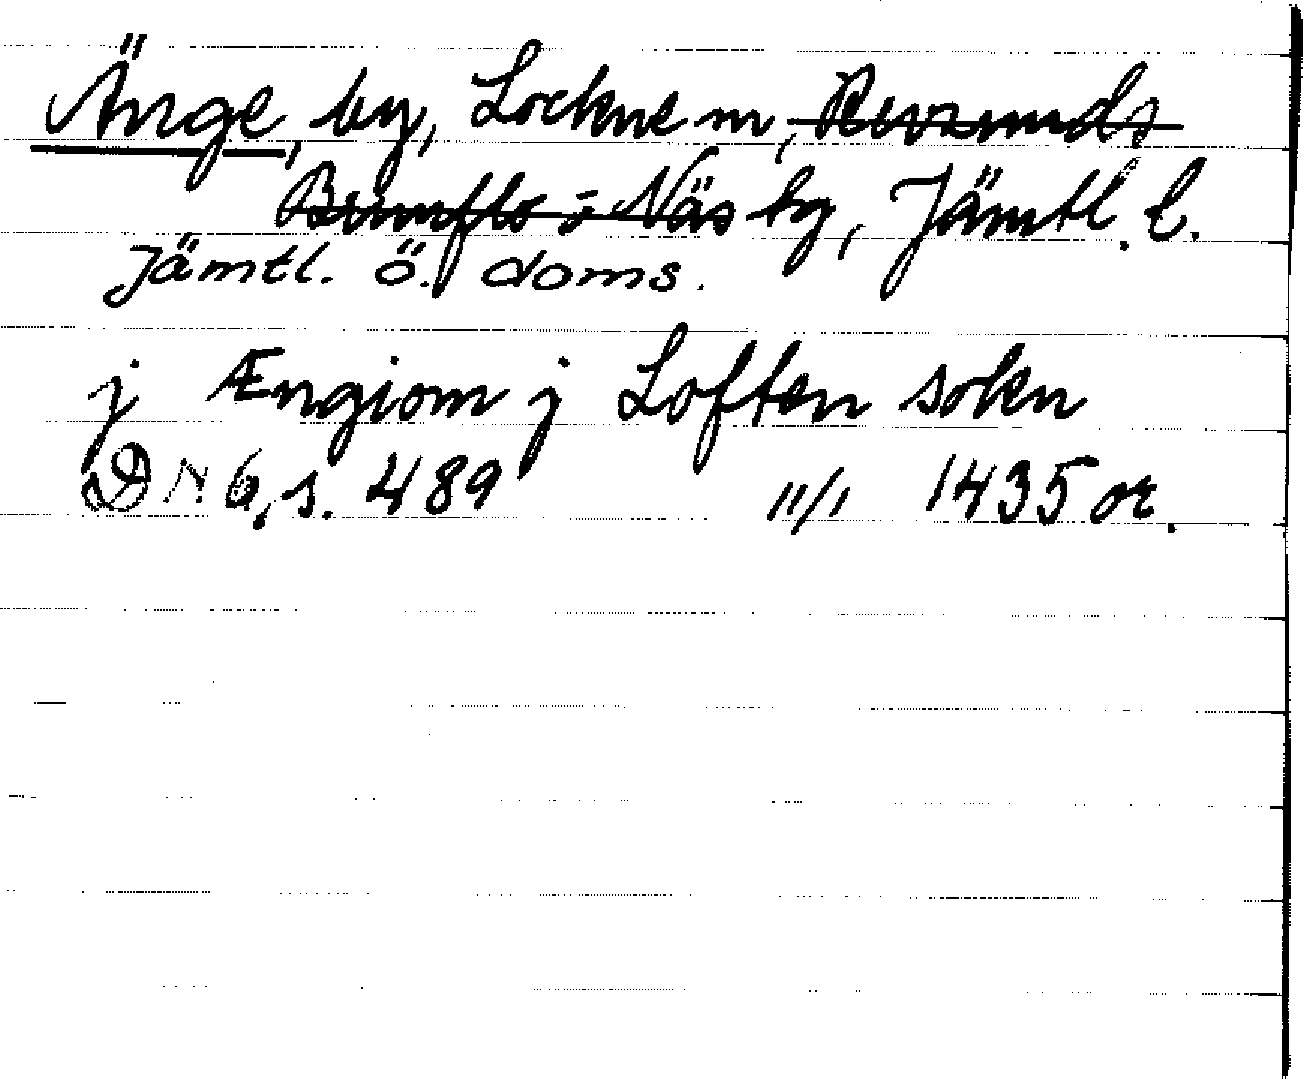 Änge, by, Lockne sn, Revsunds
Brunflo o Näs tg, Jämtl. l.
Jämtl. ö. doms.
j Ængiom j Loften sokn
DN 6, s. 489 11/1 1435 or.